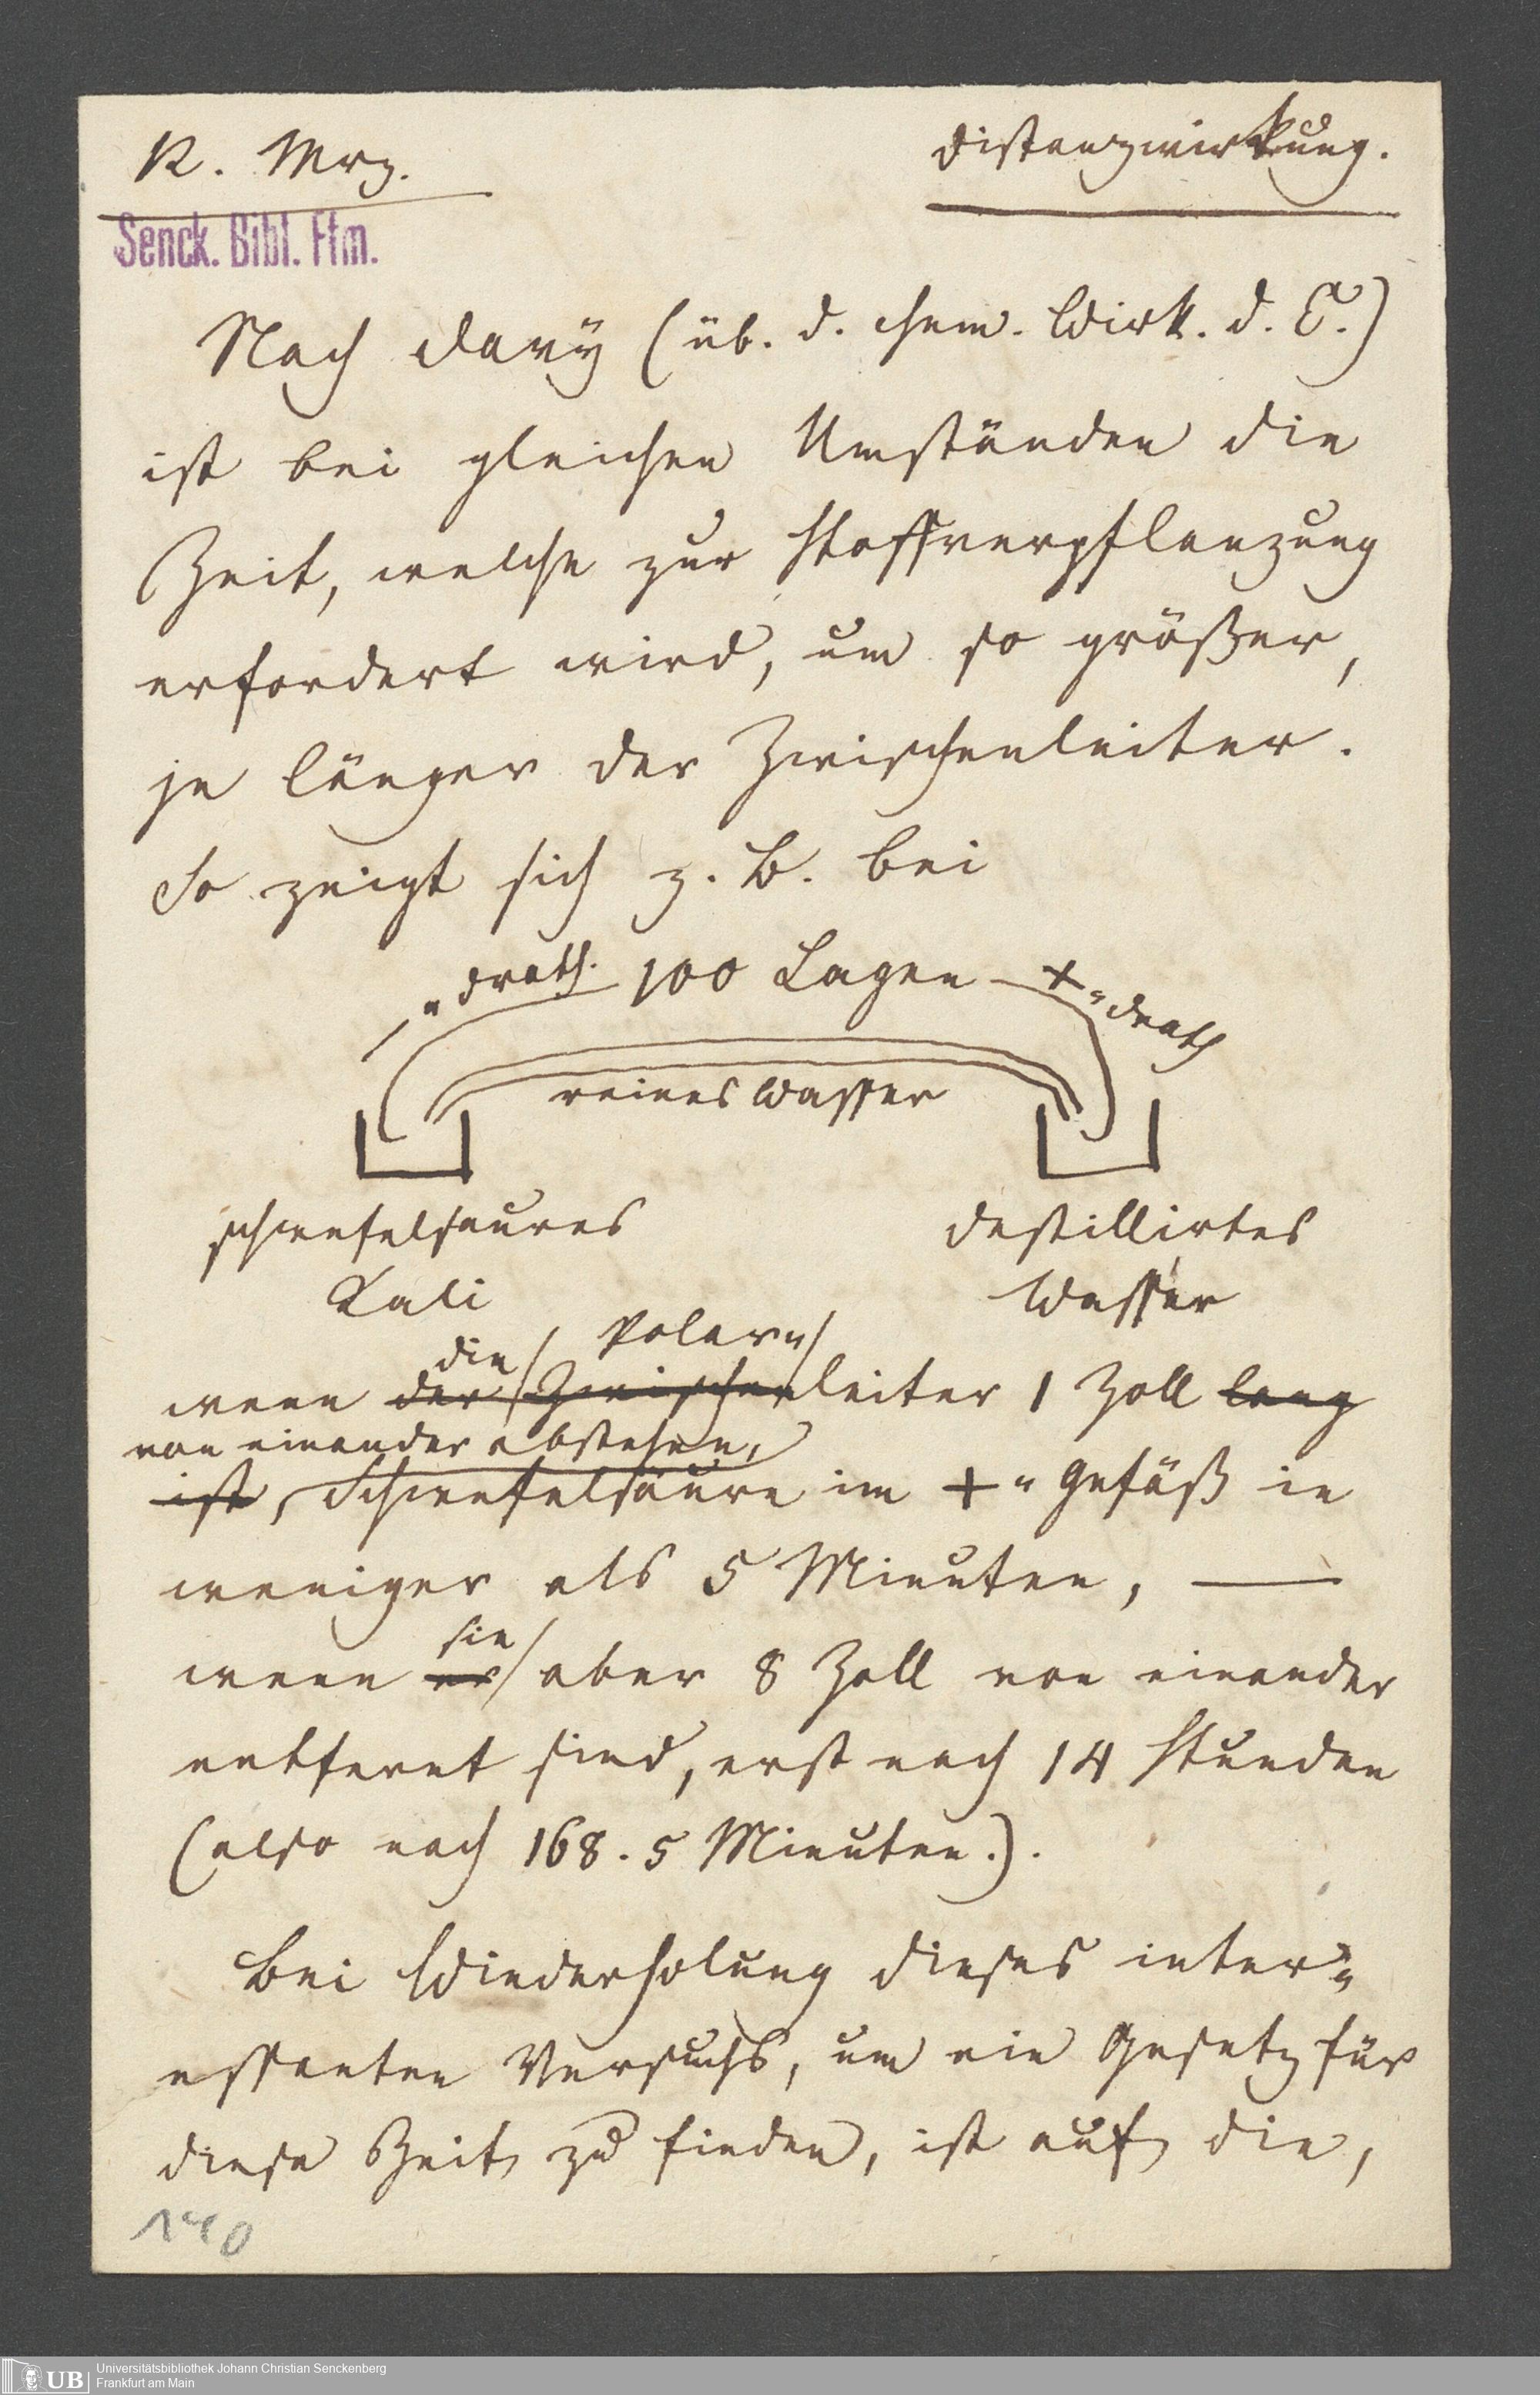 R. Mrz.
Distanzwirkung.
Senck. Bibl. Ffm.
Nach Davÿ (üb. d. chem. Wirk. d. E.)
ist bei gleichen Umständen die
Zeit, welche zur Stoffverpflanzung
erfordert wird, um so größer,
je länger der Zwischenleiter.
So zeigt sich z. B. bei
–=Drath. 100 Lagen +=Drath
reines Wasser
schwefelsaures
Kali
destillirtes
Wasser
die Polar=
wenn der Zwischenleiter 1 Zoll lang
von einander abstehen,
ist, Schwefelsäure im +=Gefäß in
weniger als 5 Minuten, —
sie
wenn er aber 8 Zoll von einander
entfernt sind, erst nach 14 Stunden
(also nach 168 . 5 Minuten.).
Bei Wiederholung dieses inter=
essanten Versuchs, um ein Gesetz für
diese Zeit zu finden, ist auf die,
140
UB
Universitätsbibliothek Johann Christian Senckenberg
Frankfurt am Main